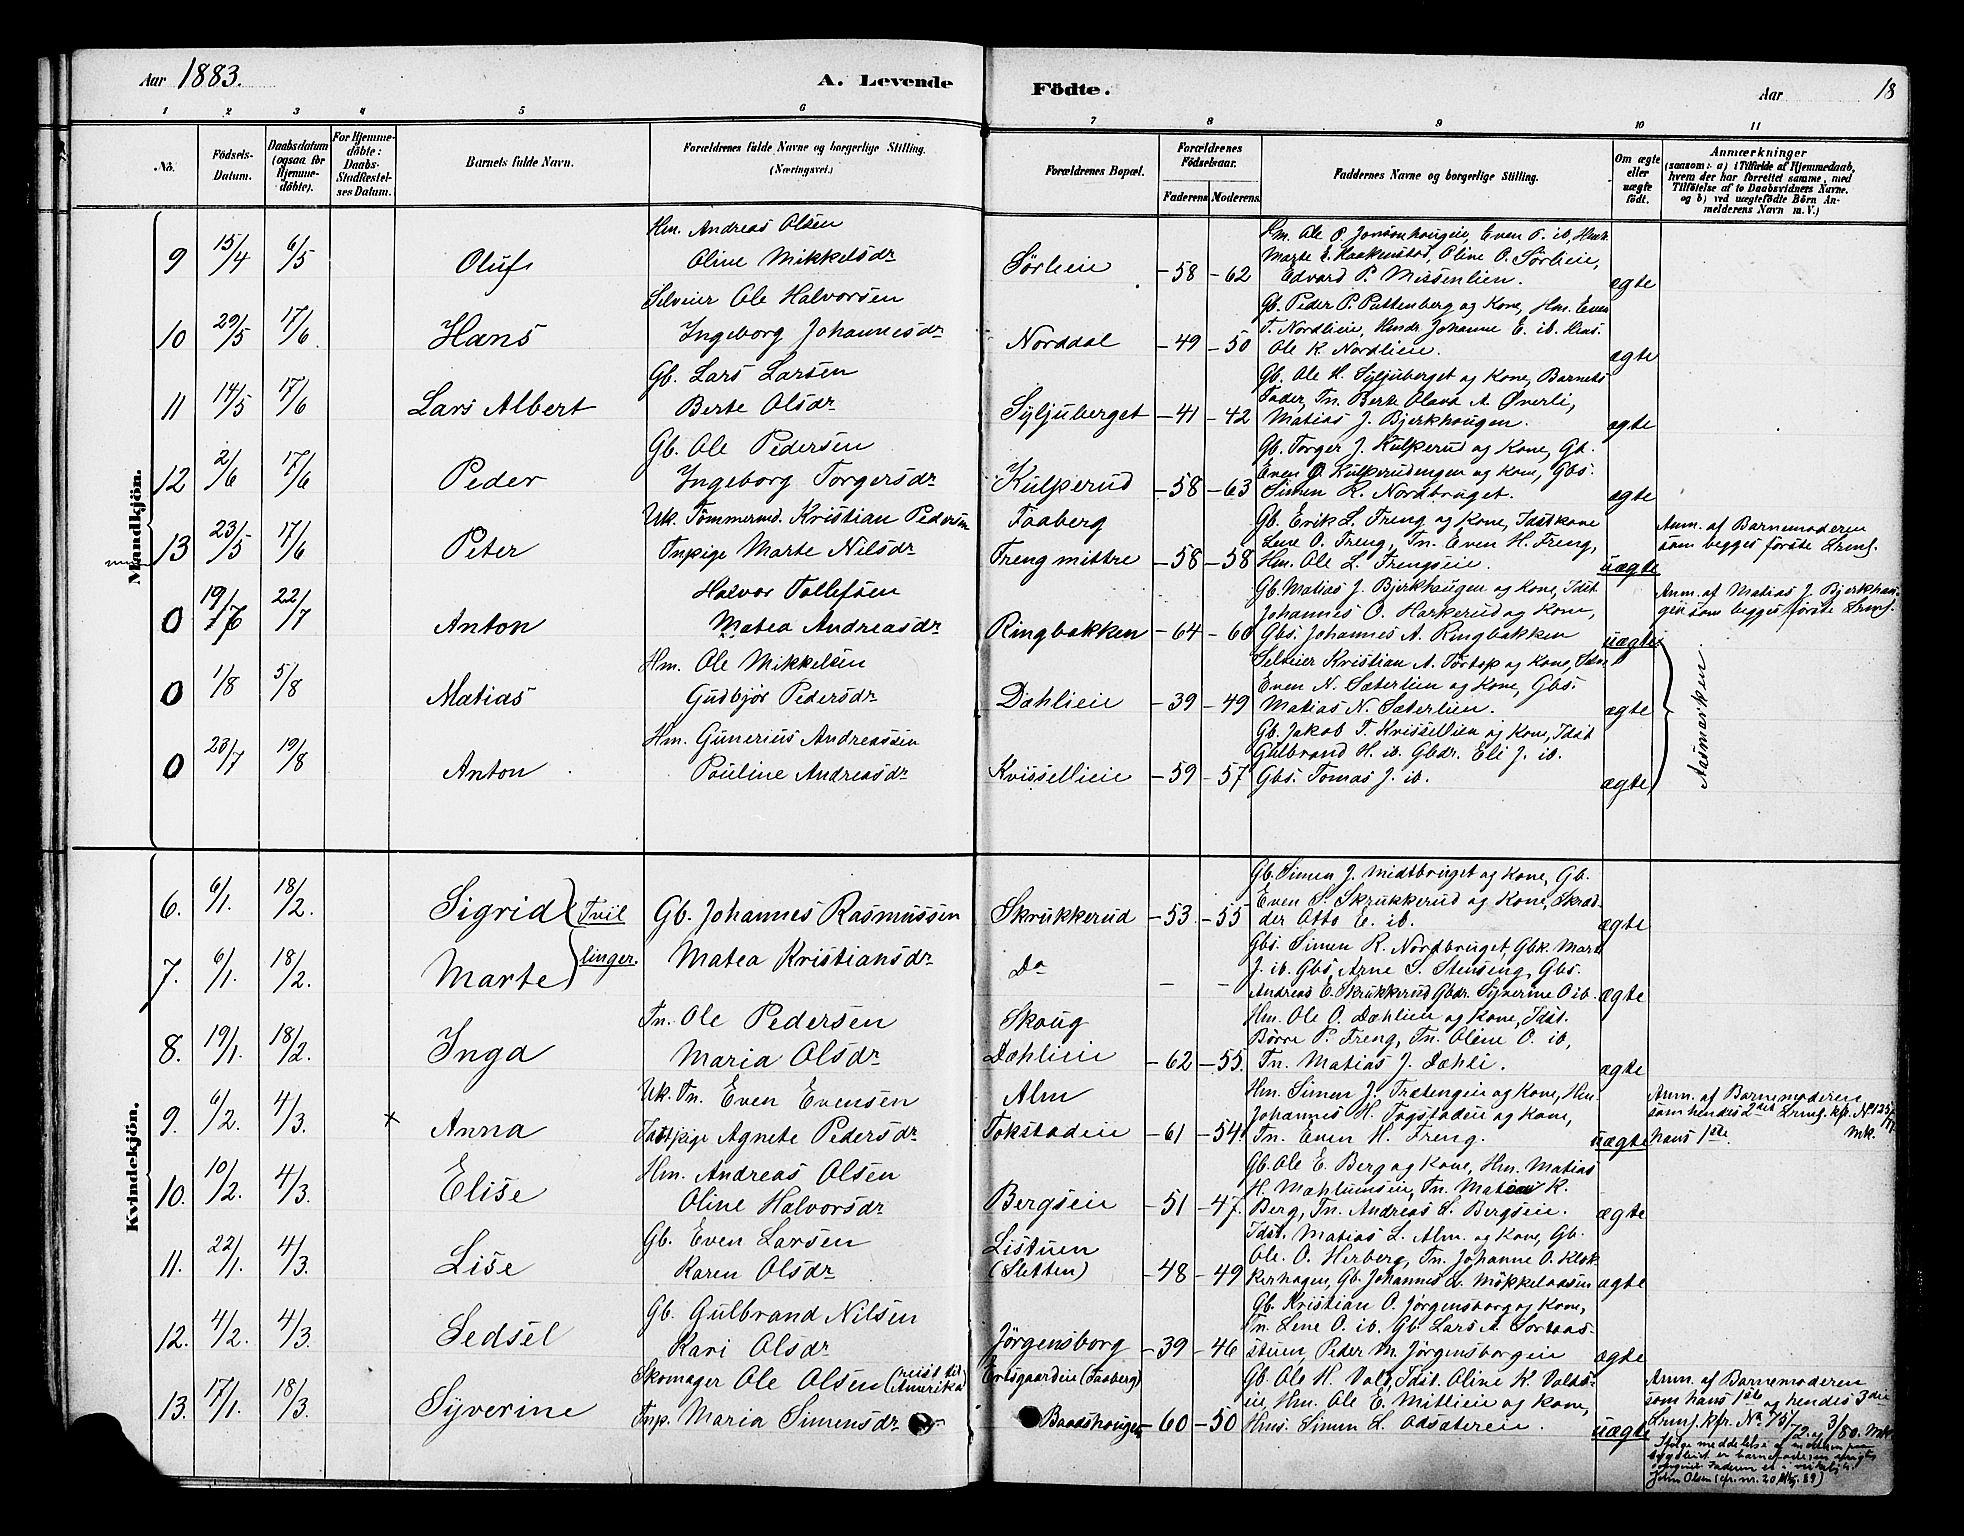 Aar 1883.
A. Levende Födte.
Aar
18
1 2 3 4 5 6 7 8 9 10 11
No.
Födsels-Datum.
Daabsdatum (ogsaa for Hjemme-döbte).
For Hjemme-döbte: Daabs-Stadfæstel-ses Datum.
Barnets fulde Navn.
Forældrenes fulde Navne og borgerlige Stilling.
(Næringsvei.)
Forældrenes Bopæl.
Forældrenes Födselsaar.
Faderens Moderens
Faddernes Navne og borgerlige Stilling.
Om ægte eller uægte födt.
Anmærkninger
(saasom: a) i Tilfælde af Hjemmedaab,
hvem der har forrettet samme, med
Tilföielse af to Daabsvidners Navne.
og b) ved uægtefödte Börn An-
melderens Navn m. V.)
Mandkjön.
9 15/4 6/5 Oluf
Hm. Andreas Olsen
Oline Mikkelsdr
Sørlieie -58 -62
Hm. Ole P. Jonsonhaugeie, Even P. ib,
Marte E. Haakenstad, Oline O. Sørlieie,
Edvard P. Missenlien.
ægte
10 29/5 17/6 Hans
Selveier Ole Halvorsen
Ingeborg Johannesdr
Norddal -49 -50
Gb. Peder P. Puttenberg og Kone, Hm. Even
T. Nordlieie, Hmdr. Johanne E. ib. Hms.
Ole K. Nordlieie.
ægte
11 14/5 17/6 Lars Albert
Gb. Lars Larsen
Berte Olsdr
Syljuberget -41 -42
Gb. Ole H. Syljuberget og Kone, Barnets
Fader, Tn. Berte Olava A. Øverli,
Matias J. Bjerkhaugen.
ægte
12 2/6 17/6 Peder
Gb. Ole Pedersen
Ingeborg Torgersdr
Kulperud -58 -63
Gb. Torger J. Kulperud og Kone, Gb.
Even O. Kulperudengen og Kone, Gbs.
Simen R. Nordbruget.
ægte
13 23/5 17/6 Peter
Uk. Tömmermd. Kristian Pedersen
Tnpige Marte Nilsdr
Faaberg
Freng mittre -58 -58
Gb. Erik L. Freng og Kone, Idstkone
Lene O. Freng, Tn. Even H. Freng,
Hm. Ole L. Frengseie.
uægte
Anm. af Barnemoderen
som begges første Lrmf.
0 19/6 22/7 Anton
Halvor Tollefsen
Matea Andreasdr
Ringbakken -64 -60
Gb. Matias J. Bjerkhaugen og Kone, Idst
Johannes O. Harkerud og Kone,
Gbs. Johannes A. Ringbakken
uægte
Anm. af Matias J. Bjerkhau-
gen som begges første Lrmf.
0 1/8 5/8 Matias
Hm. Ole Mikkelsen
Gudbjør Pedersdr
Dæhlieie -39 -49
Selveier Kristian A. Tørtop og Kone,
Even N. Sæterlien og Kone, Gbs.
Matias N. Sæterlien.
ægte
0 23/7 19/8 Anton
Hm. Gunerius Andreassen
Pauline Andreasdr
Kvissellieie -59 -57
Gb. Jakob T. Kvissellien og Kone, Idst
Gulbrand H. ib. Gbdr. Eli J. ib.
Gbs. Tomas J. ib.
ægte
Aasmarken.
Kvindekjön.
6. 6/1. 18/2. Sigrid
Tvil
Gb. Johannes Rasmussen
Skrukkerud -53 -55
Gb. Simen J. Midtbruget og Kone, Gb.
Even S. Skrukkerud og Kone, Skræd-
der Otto E. ib.
ægte
7. 6/1. 18/2. Marte
linger.
Matea Kristiansdr
Do - -
Gbs. Simen R. Nordbruget, Gbk. Marte
J. ib. Gbs. Arne S. Stenseng, Gbs.
Andreas E. Skrukkerud Gbdr. Syverine O ib.
ægte
8. 19/1. 18/2. Inga
Tn. Ole Pedersen
Maria Olsdr
Skoug
Dæhlieie -62 -55.
Hm. Ole O. Dæhlien og Kone, Idst.
Børre P. Freng, Tn. Oline O. ib,
Tn. Matias J. Dæhli.
ægte
9. 6/2. 4/3. x Anna
Uk. Tn. Even Evensen
Agnete Pedersdr
Alm
Tokstadeie -61 -54
Hm. Simen J. Trætengeie og Kone, Hm.
Johannes H. Togstadeie og Kone,
Tn. Even H. Freng.
uægte
Anm. af Barnemoderen
som hendes 2det Lrmf. kfr. No 125/
hans 1ste. mk.
10. 10/2. 4/3. Elise
Hm. Andreas Olsen
Oline Halvorsdr
Bergseie -51 -47.
Gb. Ole E. Berg og Kone, Hm. Matias
H. Mæhlumseie, Tn. K.
Berg, Tn. Andreas L. Bergseie.
ægte
11. 22/1. 4/3. Lise
Gb. Even Larsen
Karen Olsdr
Listuen
(Sletten) -48 -49
Idst. Matias L. Alm. og Kone, Gb.
Ole. O. Herberg, Tn. Johanne O. Klok-
kerhagen, Gb. Johannes Møkkelaasen
ægte
12. 4/2. 4/3. Sedsel
Gb. Gulbrand Nilsen
Kari Olsdr
Jørgensborg -39 -46
Gb. Kristian O. Jørgensborg og Kone,
Tn. Lene O. ib. Gb. Lars A.
stuen, Peder M. Jørgensborgeie
ægte
13. 17/1. 18/3. Syverine
Skomager Ole Olsen (reist til Amerika)
Tnp. Maria Simensdr
(Faaberg)
Baadshaugen -60 -50
Gb. Ole H. Vold, Idst. Oline K. Volds-
eie, Hm. Ole E. Mitlieie og Kone,
Hms. Simen L. Odsætereie.
uægte
Anm. af Barnemoderen
som hans 1ste og hendes 3die
Lrmf. kfr. No 75/72. og 3/80. mk
Ifølge meddelelse
John Olsen (cfr. nr. 20 89)